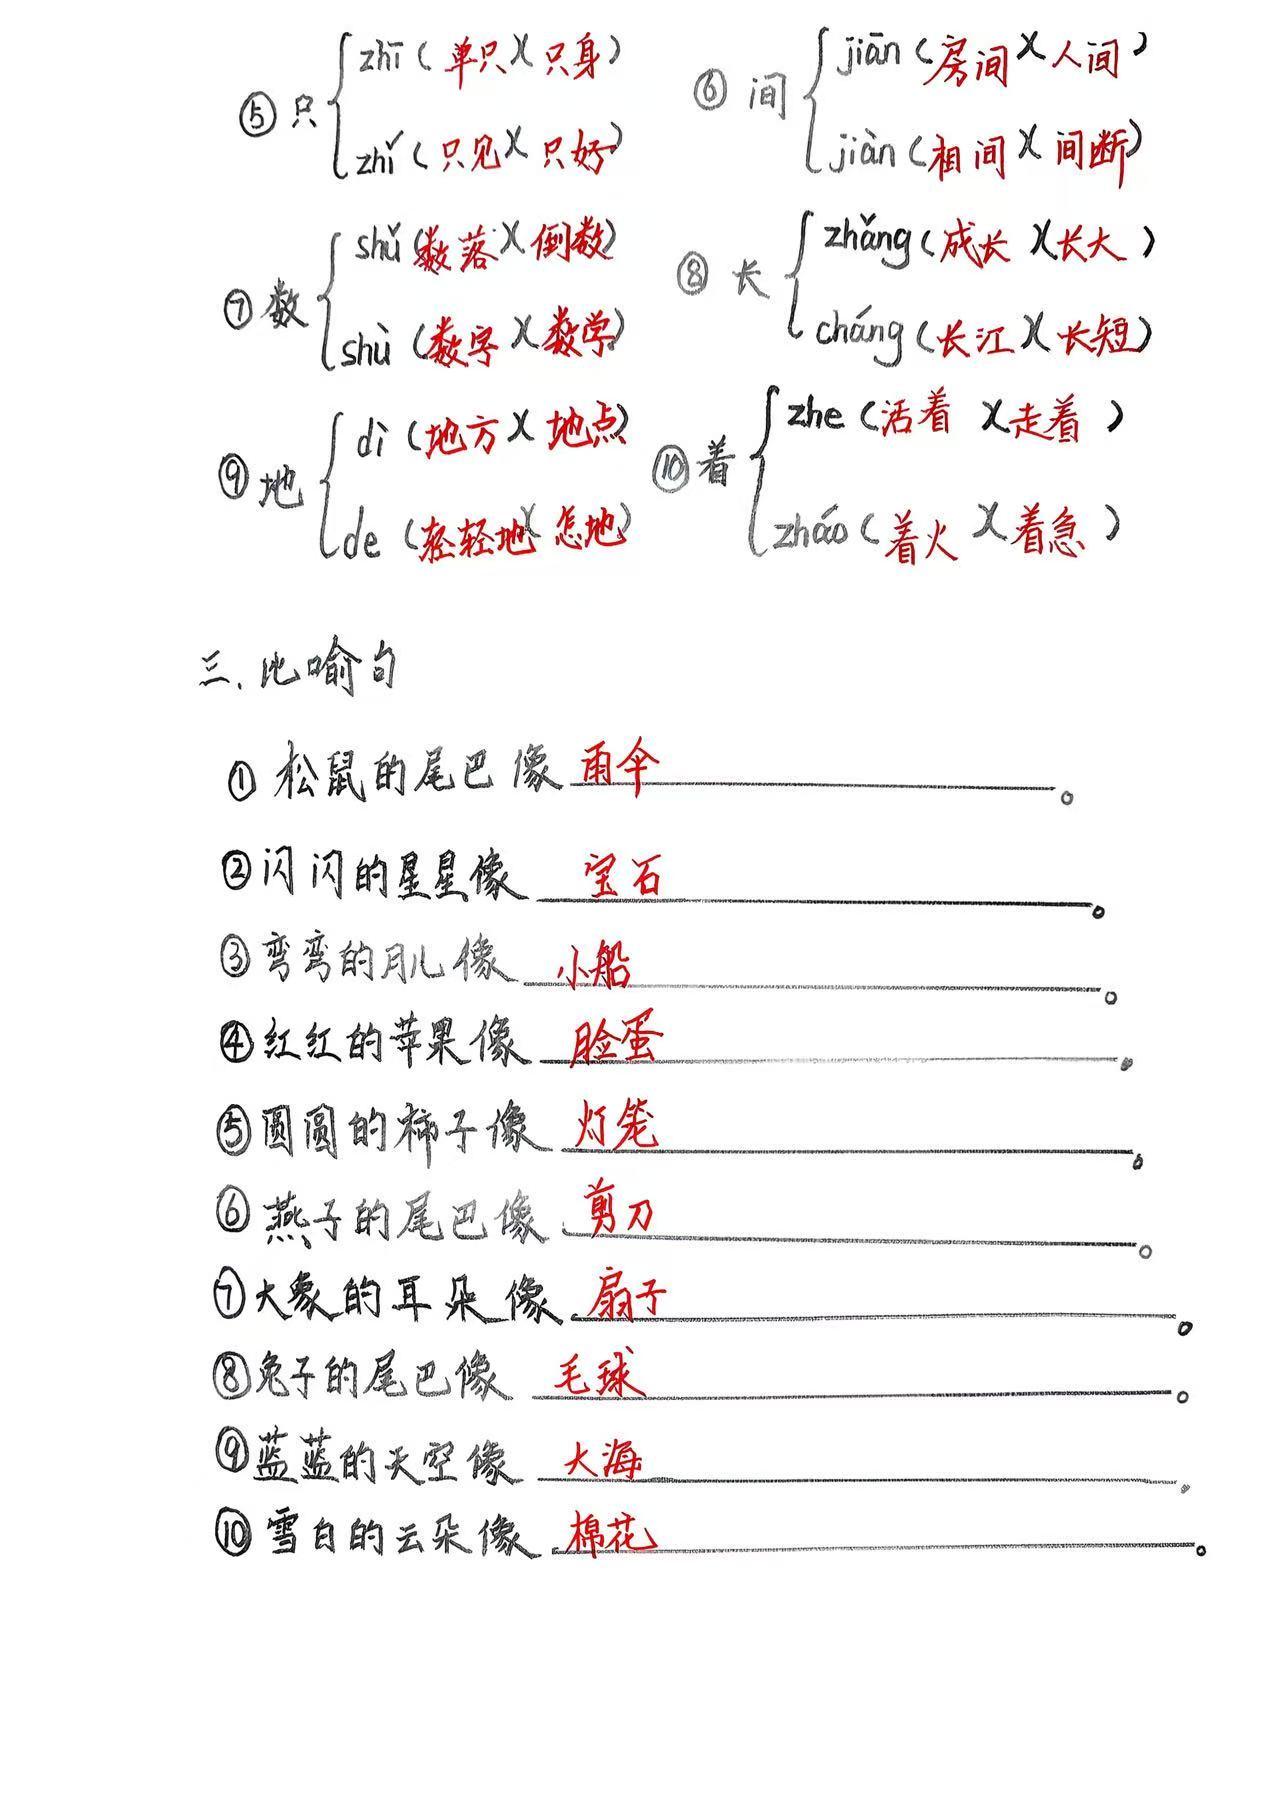 ⑤只 zhī(单只)(只身) ⑥间 jiān(房间)(人间)
zhǐ(只见)(只好) jiàn(相间)(间断)
⑦数 shǔ(数落)(倒数) ⑧长 zhǎng(成长)(长大)
shù(数字)(数学) cháng(长江)(长短)
⑨地 dì(地方)(地点) ⑩着 zhe(活着)(走着)
de(轻轻地)(怎地) zháo(着火)(着急)
三、比喻句
①松鼠的尾巴像雨伞。
②闪闪的星星像宝石。
③弯弯的月儿像小船。
④红红的苹果像脸蛋。
⑤圆圆的柿子像灯笼。
⑥燕子的尾巴像剪刀。
⑦大象的耳朵像扇子。
⑧兔子的尾巴像毛球。
⑨蓝蓝的天空像大海。
⑩雪白的云朵像棉花。